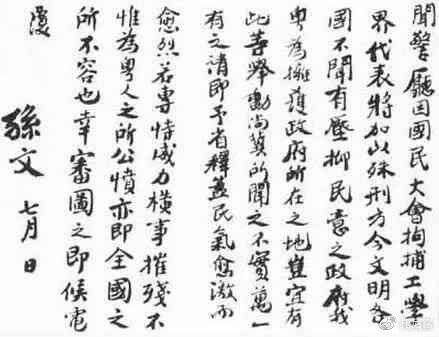 聞警廳因國民大會拘捕工學
界代表將加以殊刑方今文明各
國不聞有壓抑民意之政府我
粵為擁護政府所在之地豈宜有
此等舉動尚冀所聞之不實萬一
有之請即予省釋蓋民氣愈激而
愈烈若專恃威力橫事摧殘不
惟為粵人之所公憤亦即全國之
所不容也幸審圖之即候電
覆
孫文 七月 日